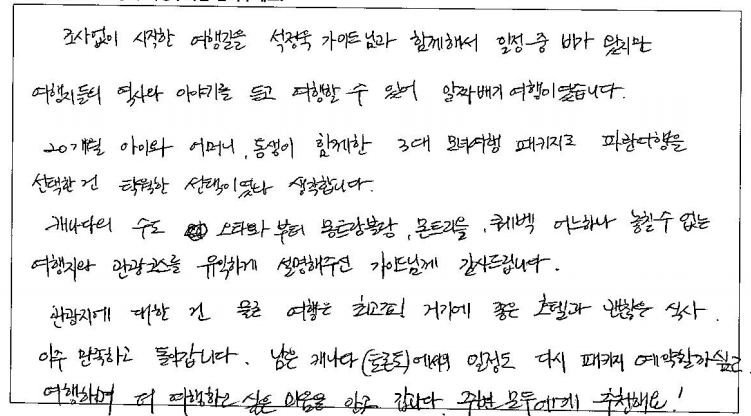 조사없이 시작한 여행길을 석정욱 가이드님과 함께해서 일정 중 비가 왔지만
여행지들의 역사와 이야기를 듣고 여행할 수 있어 알짜배기 여행이었습니다.
20개월 아이와 어머니, 동생이 함께한 3대 모녀여행 패키지로 파란여행을
선택한 건 탁월한 선택이었다 생각합니다.
캐나다의 수도 오타와부터 몽트랑블랑, 몬트리올, 퀘벡 어느하나 놓칠 수 없는
여행지와 관광코스를 유익하게 설명해주신 가이드님께 감사드립니다.
관광지에 대한 건 물론 여행은 최고였고 거기에 좋은 호텔과 괜찮은 식사
아주 만족하고 돌아갑니다. 남은 캐나다(토론토)에서의 일정도 다시 패키지 예약할까싶고
여행하며 더 여행하고 싶은 마음을 안고 갑니다. 주변 모두에게 추천해요!